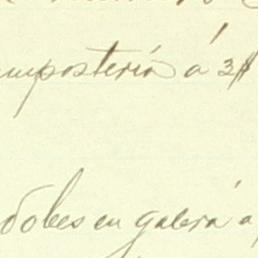 mpostería á 3$
dobes en galera á